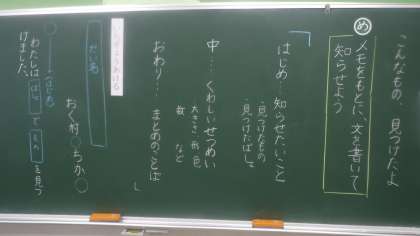 こんなもの、見つけたよ
め
メモをもとに、文を書いて
知らせよう
はじめ…知らせたいこと
・見つけたもの
・見つけたばしょ
中…くわしいせつめい
大きさ 形 色
数 など
おわり…まとめのことば
だい名
おく村 ちか
はじめ
わたしは
で
を見つ
けました。